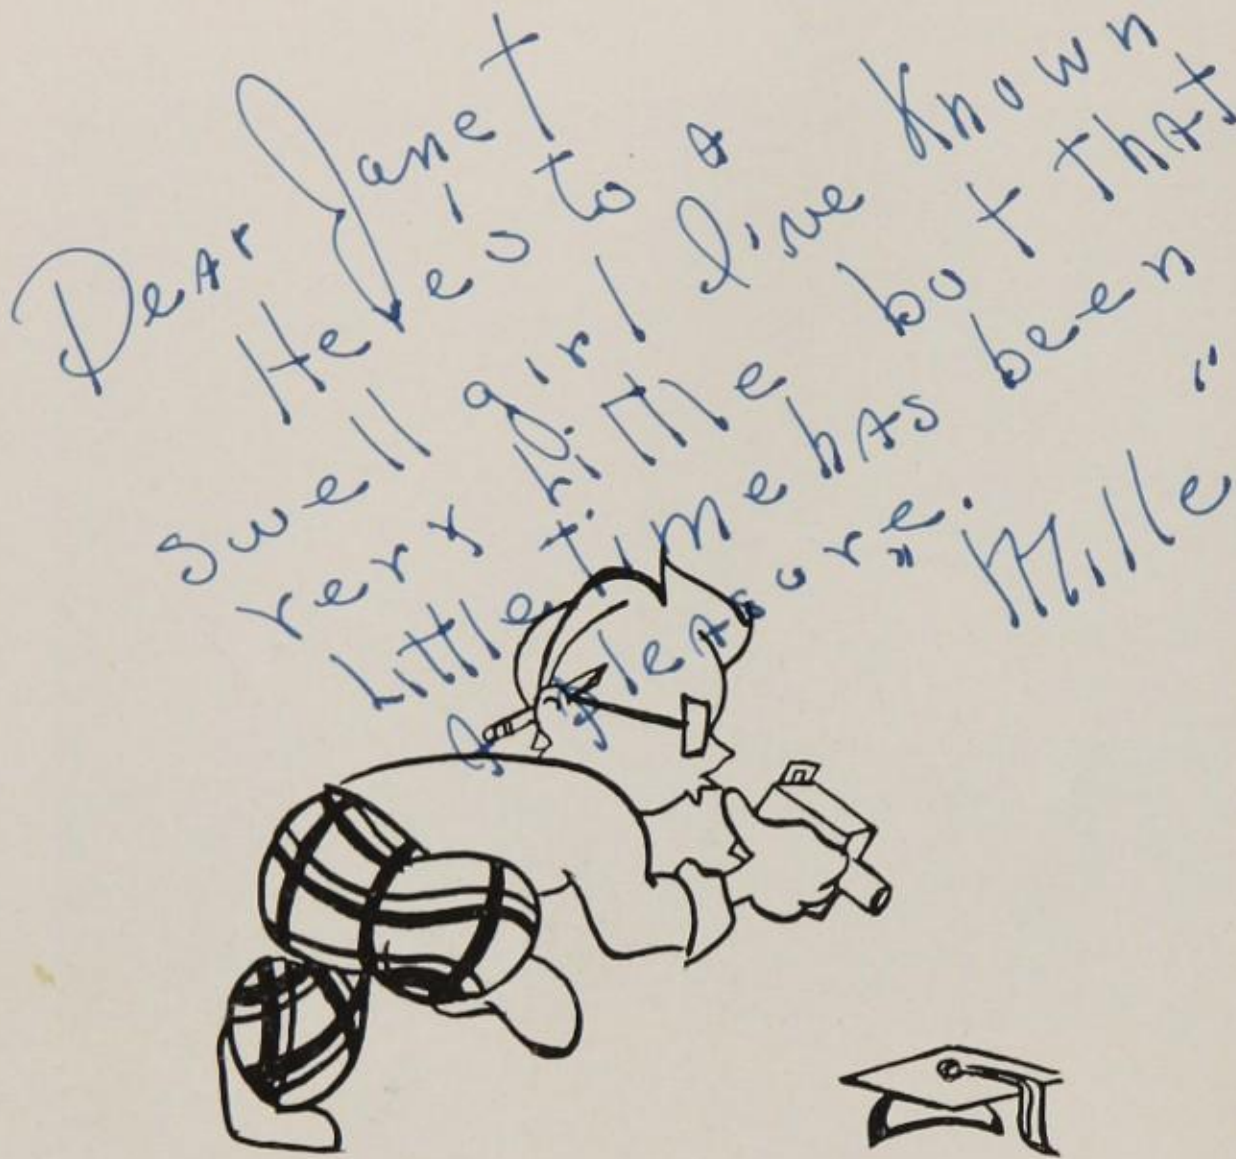 Dear Janet
Here's to a
swell girl I've Known
very Little but that
Little time has been
a pleasure.
"Mille